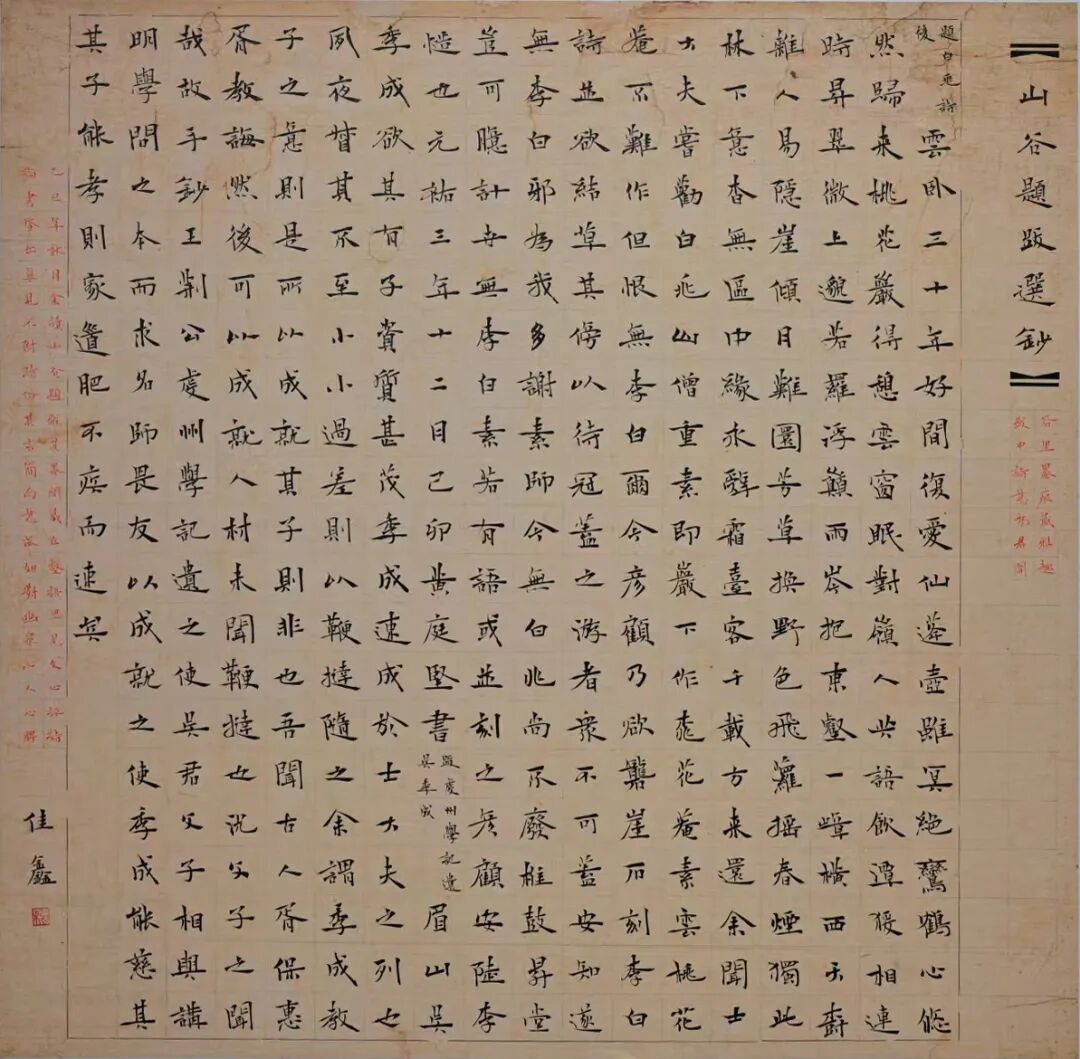 【山谷題跋選鈔】
谷里墨痕藏雅趣
題白兆詩後
雲臥三十年好閒復愛仙蓬壺雖冥絕鸞鶴心悠
然歸來桃花巖得憩雲窗眠對嶺人共語飲潭猨相連
時昇翠微上邈若羅浮巔兩岑抱東壑一嶂橫西天樹
雜人易隱崖傾月難圓芳草換野色飛蘿搖春煙獨此
林下意杳無區中緣永辭霜臺客千載方來還余聞士
大夫嘗勸白兆山僧重素即巖下作桃花菴素雲桃花
菴不難作但恨無李白爾今彥顧乃欲礱崖石刻李白
詩並欲結草其傍以待冠蓋之游者眾不可蓋安知遂
無李白邪為我多謝素師今無白兆尚不廢椎鼓昇堂
豈可臆計世無李白素若有語或並刻之彥顧安陸李
愷也元祐三年十二月己卯黃庭堅書
題虔州學記遺吳季成
眉山吳
季成欲其有子資質甚茂季成速成於士大夫之列也
夙夜督其不至小小過差則以鞭撻隨之余謂季成教
子之意則是所以成就其子則非也吾聞古人胥保惠
胥教誨然後可以成就人材未聞鞭撻也況父子之間
哉故手鈔王荊公虔州學記遺之使吳君父子相與講
明學問之本而求名師畏友以成就之使季成能慈其
其子能孝則家道肥不疾而速矣
佳鑫